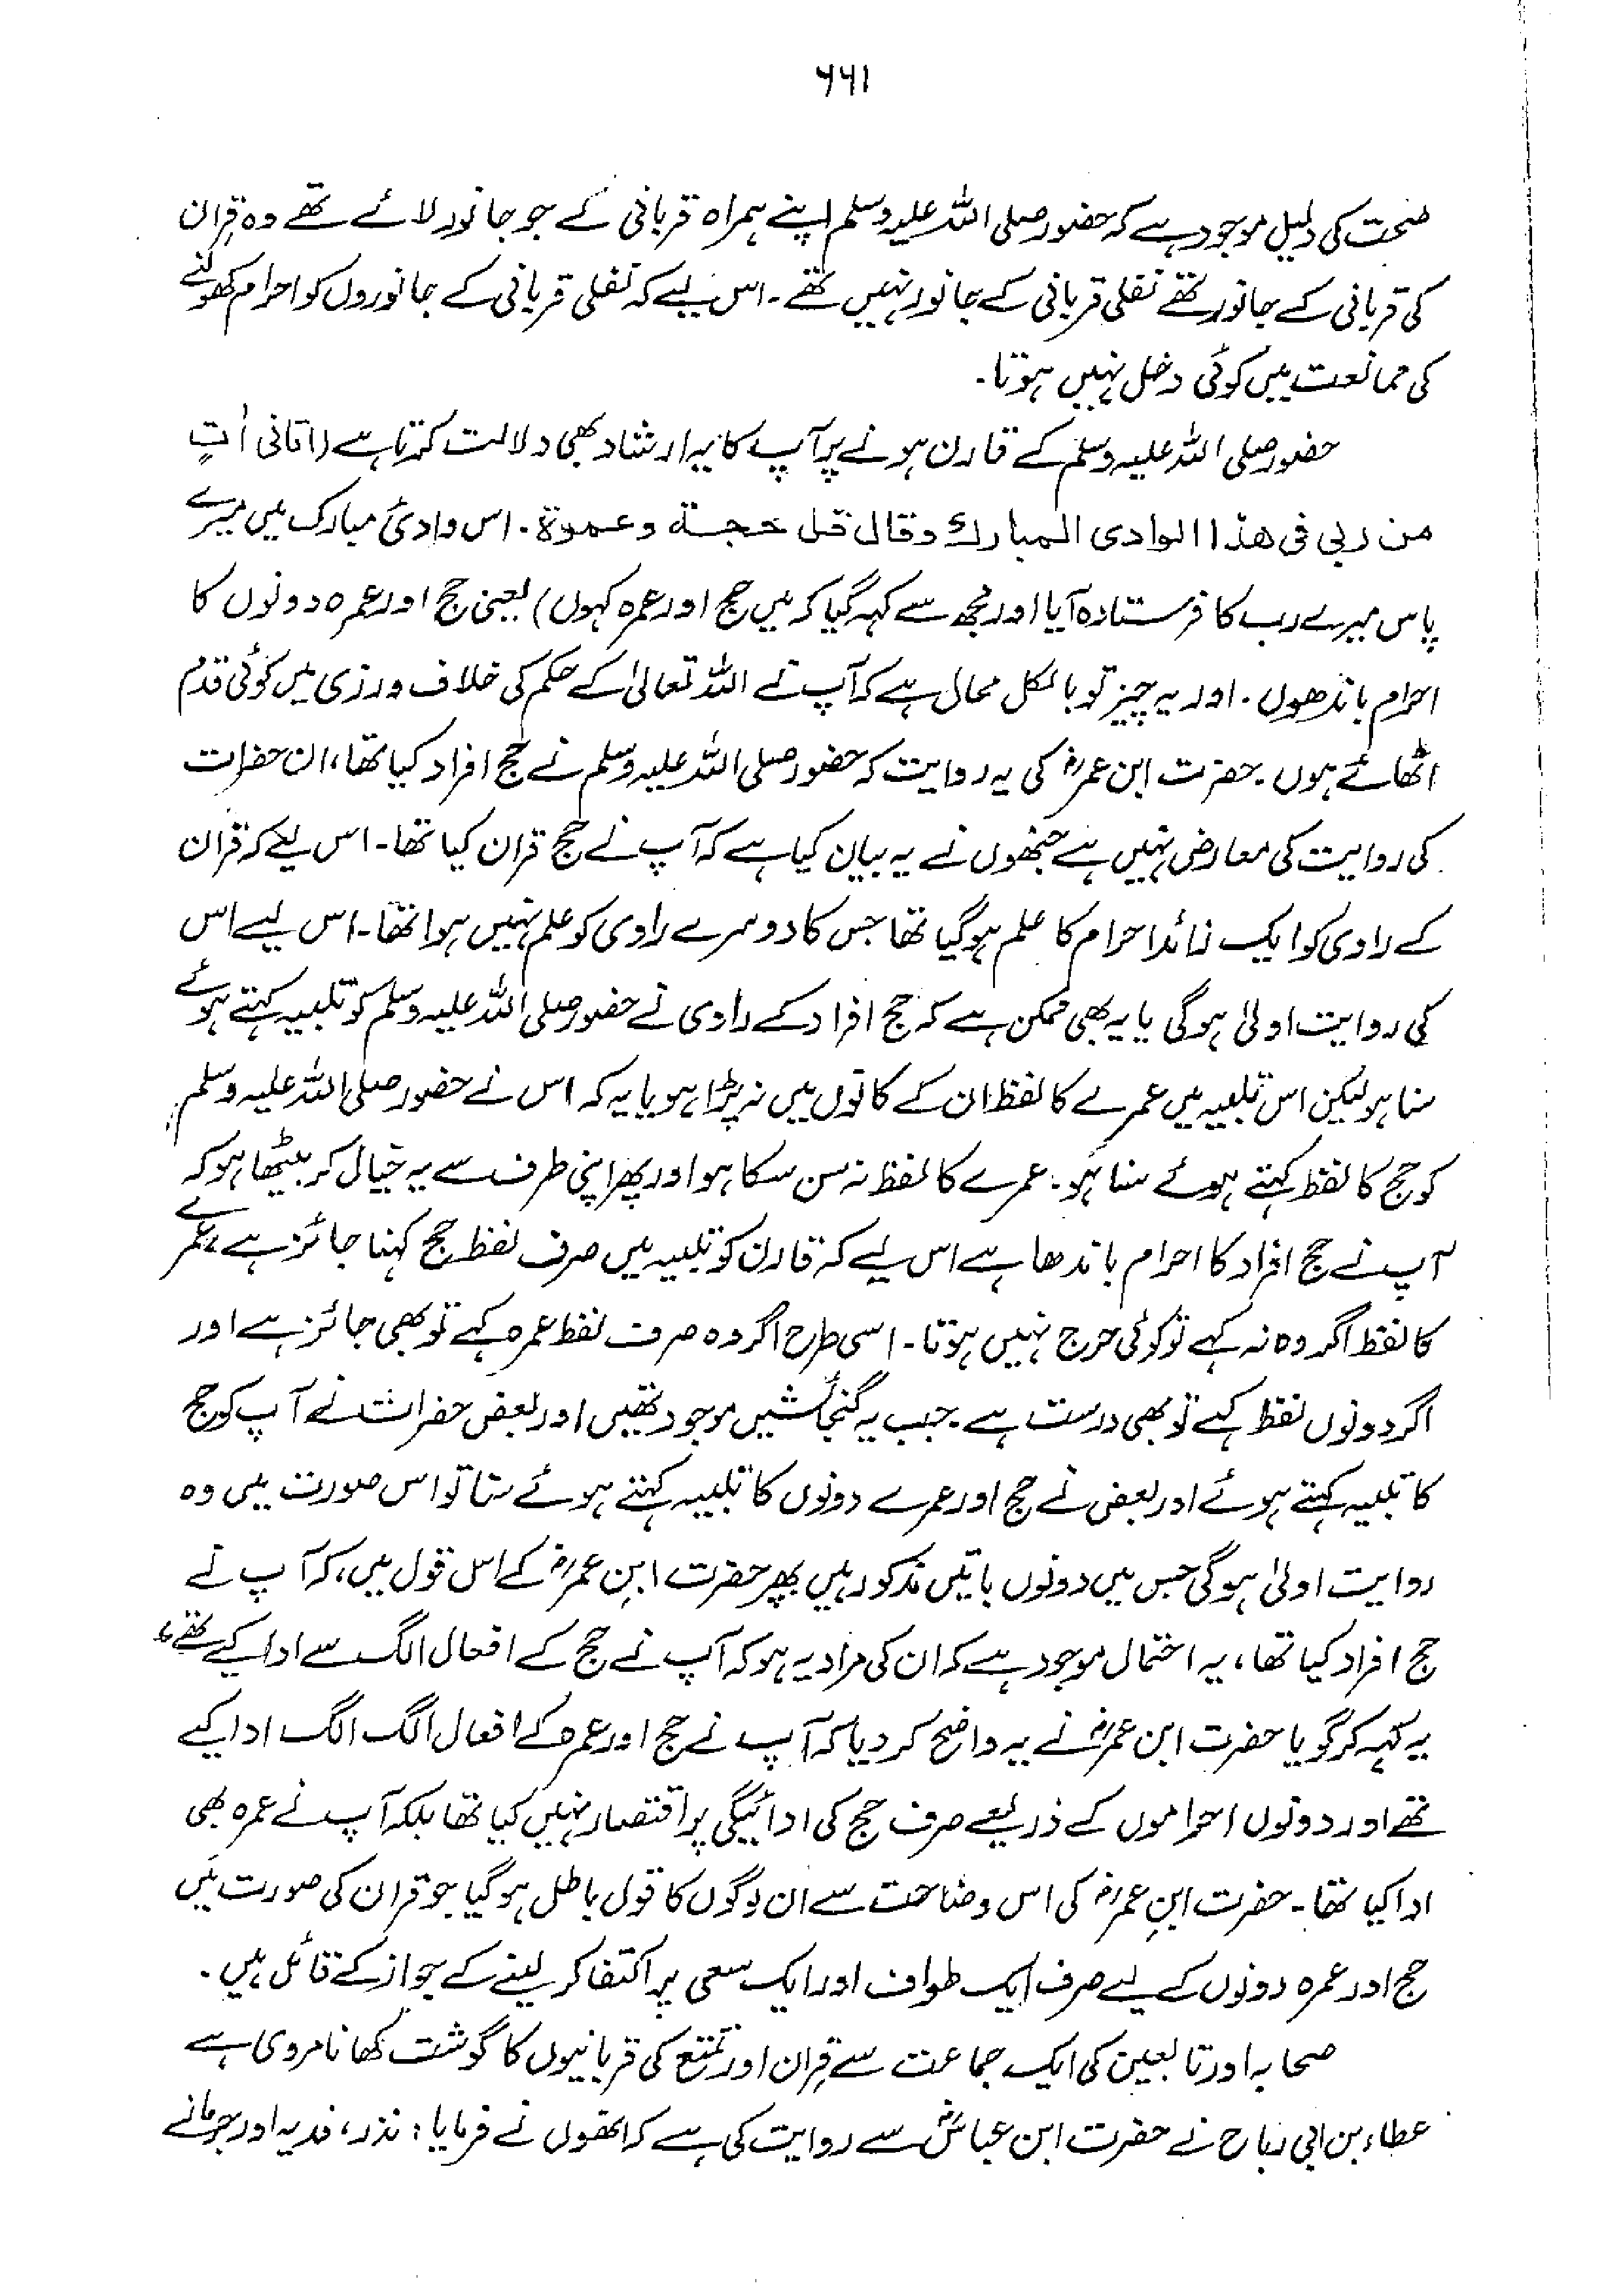 ۶۶۱
صحت کی دلیل موجود ہے کہ حضور صلی اللہ علیہ وسلم اپنے ہمراہ قربانی کے جو جانور لائے تھے وہ قِران
کی قربانی کے جانور تھے نفلی قربانی کے جانور نہیں تھے۔ اس لیے کہ نفلی قربانی کے جانوروں کو احرام کھولنے
کی ممانعت میں کوئی دخل نہیں ہوتا۔
حضور صلی اللہ علیہ وسلم کے قارن ہونے پر آپ کا یہ ارشاد بھی دلالت کرتا ہے (اتانی اٰتٍ
من ربی فی ھذا الوادی المبارك وقال قل حجة وعمرة۔ اس وادیٔ مبارک میں میرے
پاس میرے رب کا فرستادہ آیا اور مجھ سے کہہ گیا کہ میں حج اور عمرہ کہوں) یعنی حج اور عمرہ دونوں کا
احرام باندھوں۔ اور یہ چیز تو بالکل محال ہے کہ آپ نے اللہ تعالیٰ کے حکم کی خلاف ورزی میں کوئی قدم
اٹھائے ہوں۔ حضرت ابن عمرؓ کی یہ روایت کہ حضور صلی اللہ علیہ وسلم نے حج افراد کیا تھا، ان حضرات
کی روایت کی معارض نہیں ہے جنھوں نے یہ بیان کیا ہے کہ آپ نے حج قران کیا تھا۔ اس لیے کہ قران
کے راوی کو ایک زائد احرام کا علم ہو گیا تھا جس کا دوسرے راوی کو علم نہیں ہوا تھا۔ اس لیے اس
کی روایت اولیٰ ہوگی یا یہ بھی ممکن ہے کہ حج افراد کے راوی نے حضور صلی اللہ علیہ وسلم کو تلبیہ کہتے ہوئے
سنا ہو لیکن اس تلبیہ میں عمرے کا لفظ ان کے کانوں میں نہ پڑا ہو یا یہ کہ اس نے حضور صلی اللہ علیہ وسلم
کو حج کا لفظ کہتے ہوئے سنا ہو۔ عمرے کا لفظ نہ سن سکا ہو اور پھر اپنی طرف سے یہ خیال کر بیٹھا ہو کہ
آپ نے حج افراد کا احرام باندھا ہے اس لیے کہ قارن کو تلبیہ میں صرف لفظ حج کہنا جائز ہے، عمرے
کا لفظ اگر وہ نہ کہے تو کوئی حرج نہیں ہوتا۔ اسی طرح اگر وہ صرف لفظ عمرہ کہے تو بھی جائز ہے اور
اگر دونوں لفظ کہے تو بھی درست ہے۔ جب یہ گنجائشیں موجود تھیں اور بعض حضرات نے آپ کو حج
کا تلبیہ کہتے ہوئے اور بعض نے حج اور عمرے دونوں کا تلبیہ کہتے ہوئے سنا تو اس صورت میں وہ
روایت اولیٰ ہوگی جس میں دونوں باتیں مذکور ہیں پھر حضرت ابنِ عمرؓ کے اس قول میں، کہ آپ نے
حج افراد کیا تھا، یہ احتمال موجود ہے کہ ان کی مراد یہ ہو کہ آپ نے حج کے افعال الگ سے ادا کیے تھے،
یہ کہہ کر گویا حضرت ابن عمرؓ نے یہ واضح کر دیا کہ آپ نے حج اور عمرہ کے افعال الگ الگ ادا کیے
تھے اور دونوں احراموں کے ذریعے صرف حج کی ادائیگی پر اقتصار نہیں کیا تھا بلکہ آپ نے عمرہ بھی
ادا کیا تھا۔ حضرت ابنِ عمرؓ کی اس وضاحت سے ان لوگوں کا قول باطل ہو گیا جو قران کی صورت میں
حج اور عمرہ دونوں کے لیے صرف ایک طواف اور ایک سعی پر اکتفا کر لینے کے جواز کے قائل ہیں۔
صحابہ اور تابعین کی ایک جماعت سے قِران اور تمتع کی قربانیوں کا گوشت کھانا مروی ہے
عطاء بن ابی رباح نے حضرت ابن عباسؓ سے روایت کی ہے کہ انھوں نے فرمایا: نذر، فدیہ اور جرمانے